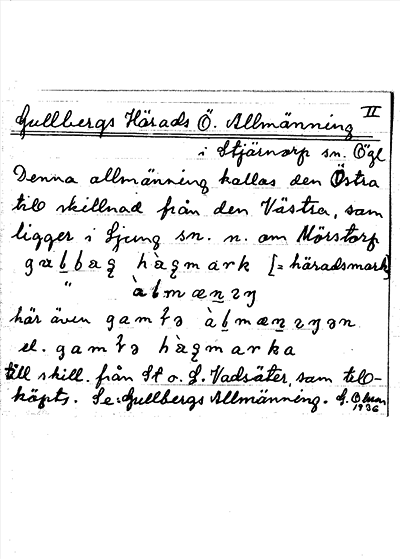 Gullbergs Härads Ö. Allmänning II
i Stjärnorp sn. Ögl
Denna allmänning kallas den Östra
till skillnad från den Västra, som
ligger i Ljung sn. n. om Mörstorp
hàgmark [= häradsmark]
" àlmæniŋ
här även gamła
el. gamła hàgmarka
till skill. från St o. L. Vadsäter, som till-
köpts. Se: Gullbergs Allmänning. G. Olson
1936